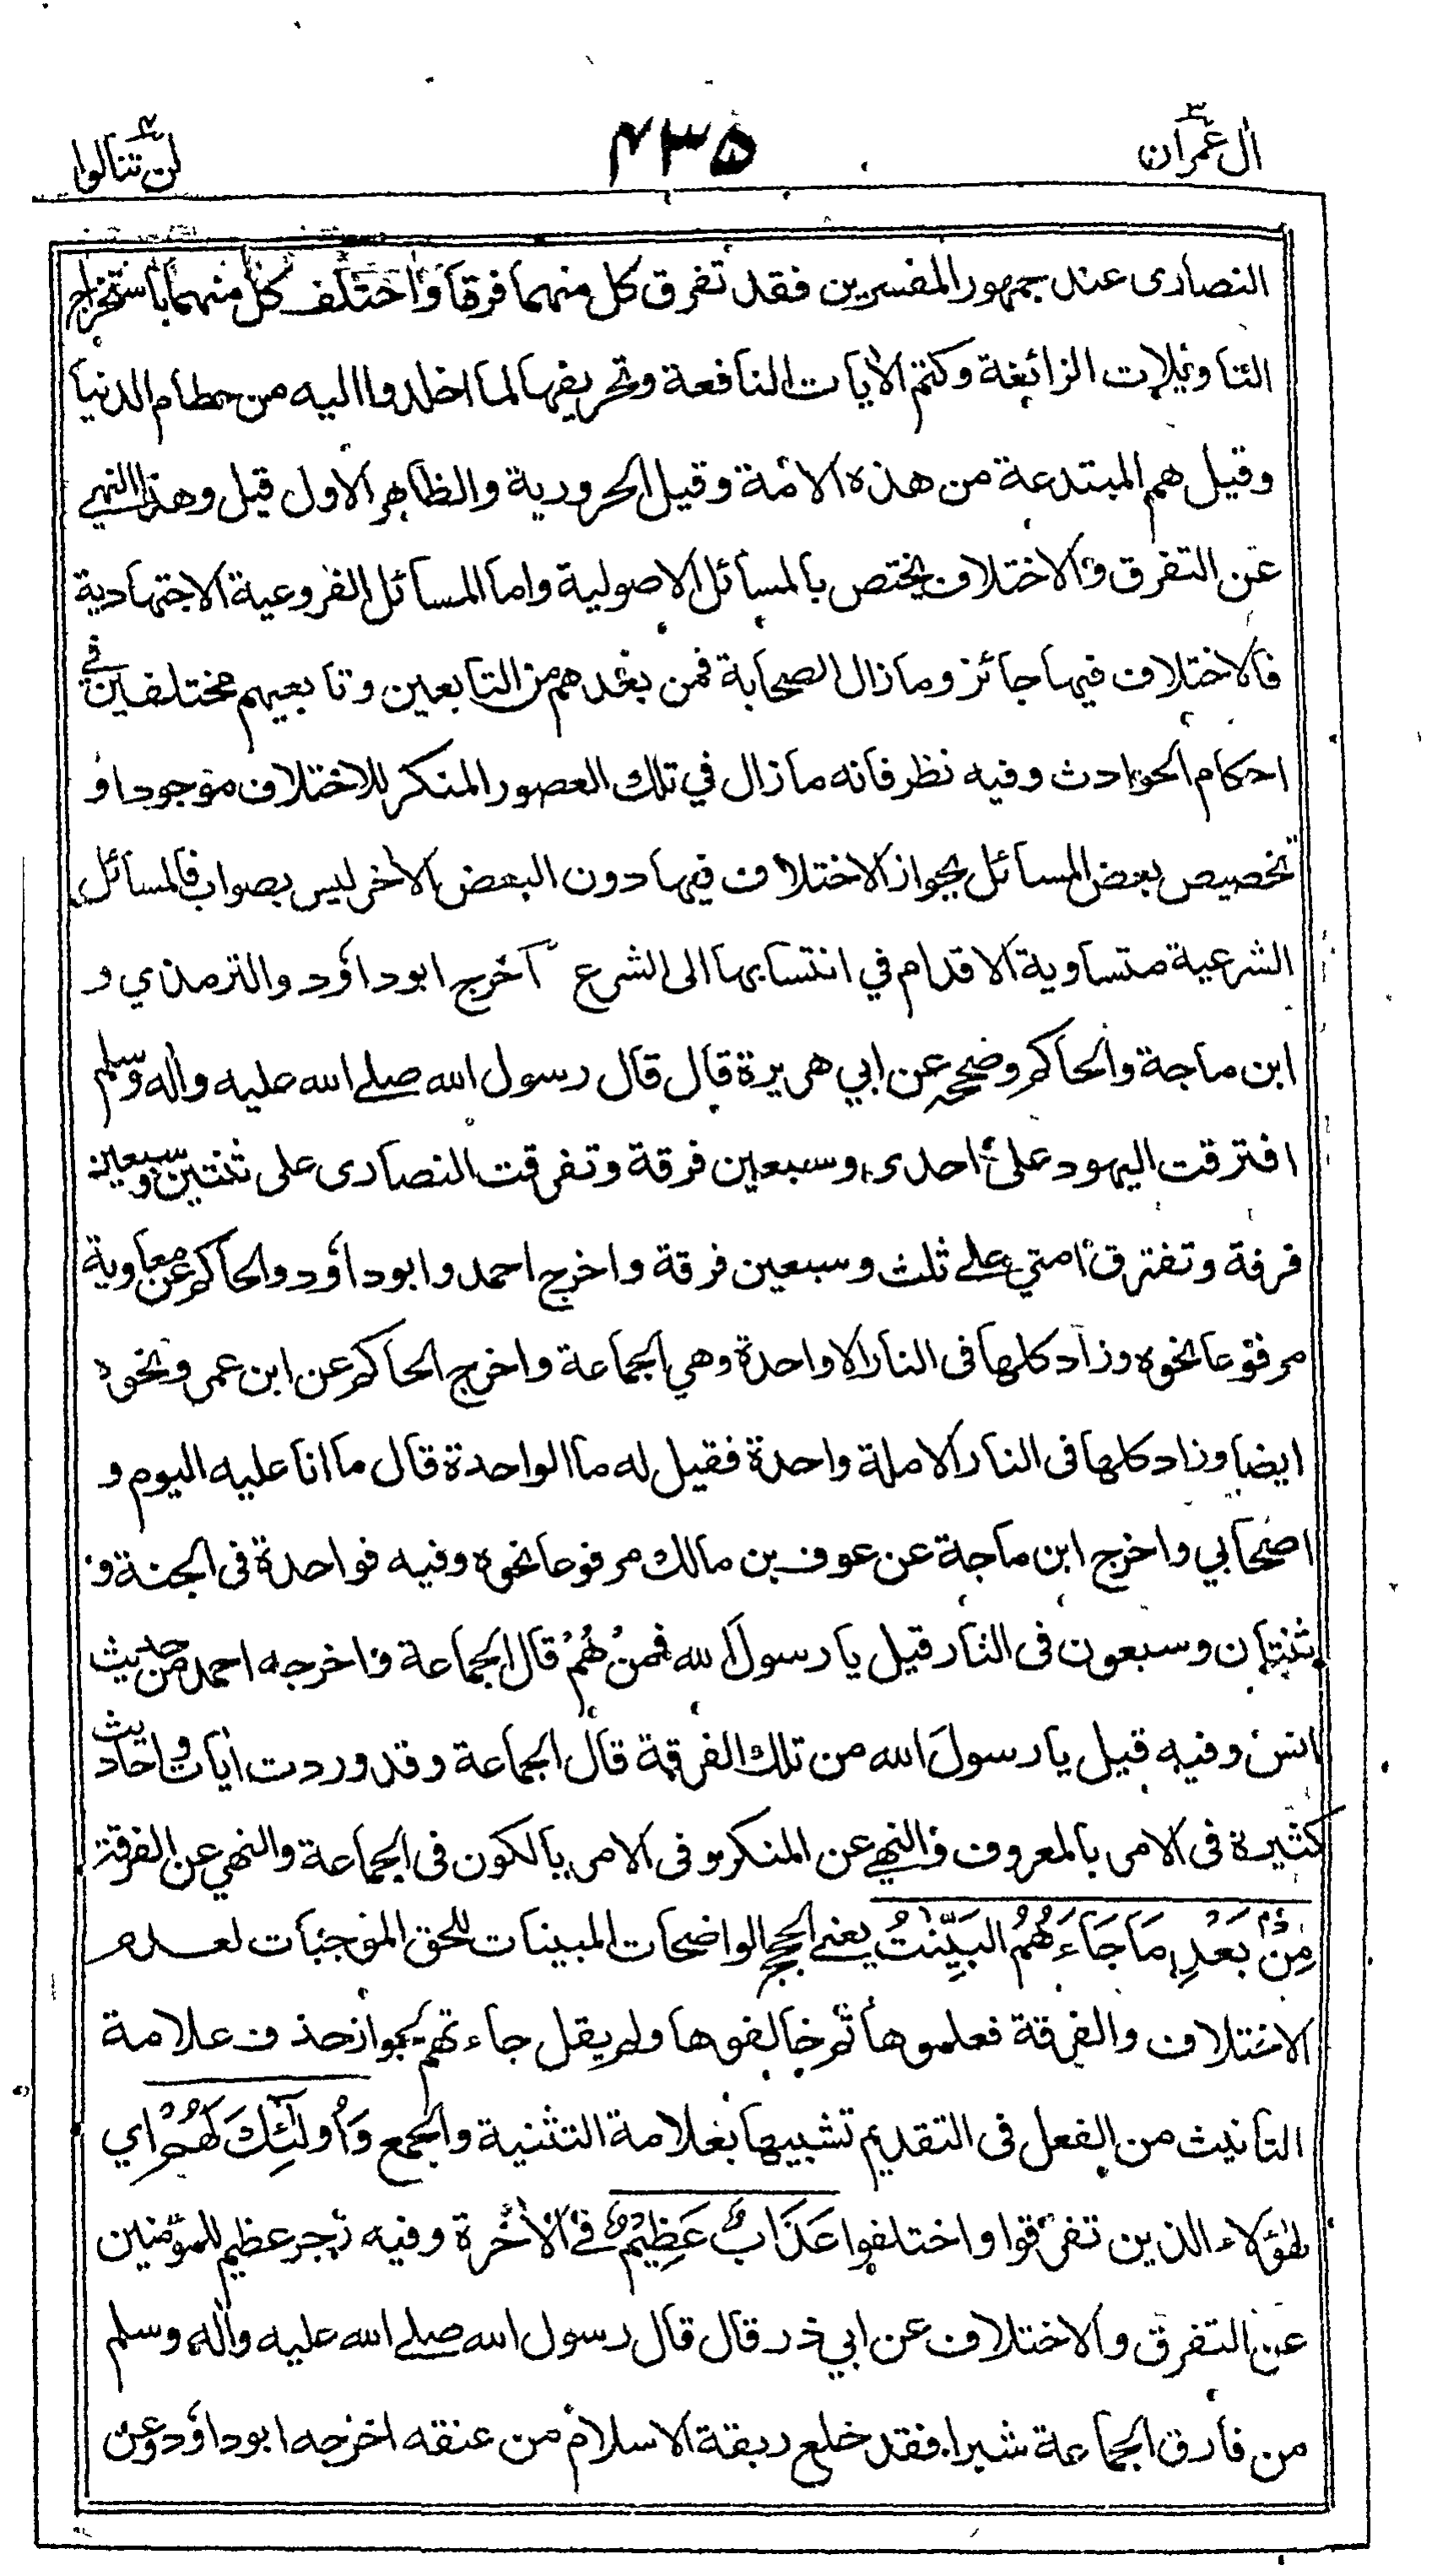 اٰل عمران ٣
٤٣٥
لن تنالوا ٤
النصارى عند جمهور المفسرين فقد تفرق كل منهما فرقا واختلف كل منهما باستخراج
التاويلات الزائغة وكتم الاٰيات النافعة وتحريفها لما اخلدوا اليه من حطام الدنيا
وقيل هم المبتدعة من هذه الامة وقيل الحرورية والظاهر الاول قيل وهذا النهي
عن التفرق والاختلاف يختص بالمسائل الاصولية واما المسائل الفروعية الاجتهادية
فالاختلاف فيها جائز وما زال الصحابة فمن بعدهم من التابعين وتابعيهم مختلفين في
احكام الحوادث وفيه نظر فانه ما زال في تلك العصور المنكر للاختلاف موجودا و
تخصيص بعض المسائل بجواز الاختلاف فيها دون البعض الاٰخر ليس بصواب فالمسائل
الشرعية متساوية الاقدام في انتسابها الى الشرع اخرج ابو داؤد والترمذي و
ابن ماجة والحاكم وصححه عن ابي هريرة قال قال رسول الله صلى الله عليه واٰله وسلم
افترقت اليهود على احدى وسبعين فرقة وتفرقت النصارى على ثنتين وسبعين
فرقة وتفترق امتي على ثلث وسبعين فرقة واخرج احمد وابو داؤد والحاكم عن معاوية
مرفوعا نحوه وزاد كلها فى النار الا واحدة وهي الجماعة واخرج الحاكم عن ابن عمرو نحوه
ايضا وزاد كلها فى النار الا ملة واحدة فقيل له ما الواحدة قال ما انا عليه اليوم و
اصحابي واخرج ابن ماجة عن عوف بن مالك مرفوعا نحوه وفيه فواحدة فى الجنة و
ثنتان وسبعون فى النار قيل يا رسول الله فمن هُمْ قال الجماعة واخرجه احمد من حديث
انس وفيه قيل يا رسولَ الله من تلك الفرقة قال الجماعة وقد وردت اٰيات واحاديث
كثيرة فى الامر بالمعروف والنهي عن المنكر وفى الامر بالكون فى الجماعة والنهي عن الفرقة
مِنْۢ بَعْدِ مَا جَآءَهُمُ الْبَيِّنٰتُ يعني الحجج الواضحات المبينات للحق الموجبات لعدم
الاختلاف والفرقة فعلموها ثم خالفوها ولم يقل جاءتهم لجواز حذف علامة
التانيث من الفعل فى التقديم تشبيها بعلامة التثنية والجمع وَاُولٰٓئِكَ لَهُمْ اي
لهٰؤلاء الذين تفرقوا واختلفوا عَذَابٌ عَظِيْمٌ في الاٰخرة وفيه زجر عظيم للمؤمنين
عن التفرق والاختلاف عن ابي ذر قال قال رسول الله صلى الله عليه واٰله وسلم
من فارق الجماعة شبرا فقد خلع ربقة الاسلام من عنقه اخرجه ابو داؤد وعن